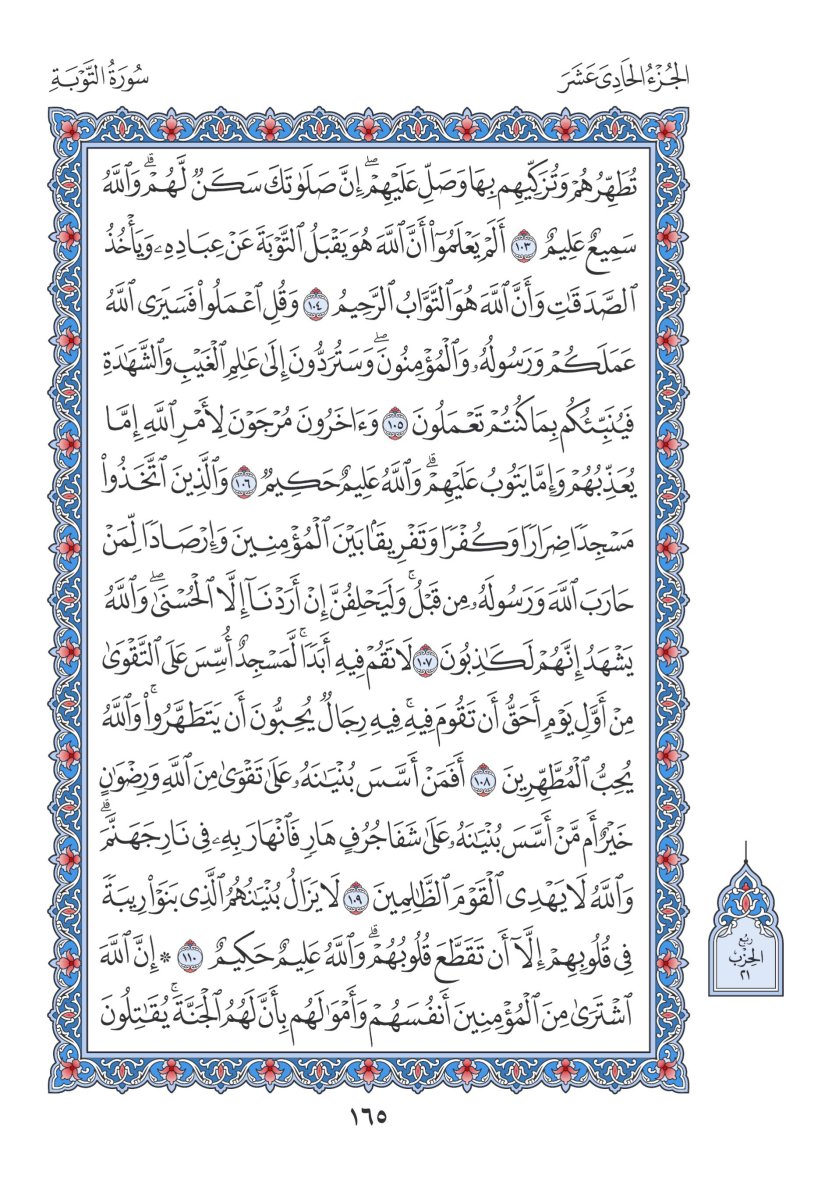 الجُزْءُ الحَادِى عَشَرَ
سُورَةُ التَّوْبَةِ
تُطَهِّرُهُمْ وَتُزَكِّيهِم بِهَا وَصَلِّ عَلَيْهِمْۖ إِنَّ صَلَوٰتَكَ سَكَنٌ لَّهُمْۗ وَٱللَّهُ
سَمِيعٌ عَلِيمٌ ١٠٣ أَلَمْ يَعْلَمُوٓا۟ أَنَّ ٱللَّهَ هُوَ يَقْبَلُ ٱلتَّوْبَةَ عَنْ عِبَادِهِۦ وَيَأْخُذُ
ٱلصَّدَقَٰتِ وَأَنَّ ٱللَّهَ هُوَ ٱلتَّوَّابُ ٱلرَّحِيمُ ١٠٤ وَقُلِ ٱعْمَلُوا۟ فَسَيَرَى ٱللَّهُ
عَمَلَكُمْ وَرَسُولُهُۥ وَٱلْمُؤْمِنُونَۖ وَسَتُرَدُّونَ إِلَىٰ عَٰلِمِ ٱلْغَيْبِ وَٱلشَّهَٰدَةِ
فَيُنَبِّئُكُم بِمَا كُنتُمْ تَعْمَلُونَ ١٠٥ وَءَاخَرُونَ مُرْجَوْنَ لِأَمْرِ ٱللَّهِ إِمَّا
يُعَذِّبُهُمْ وَإِمَّا يَتُوبُ عَلَيْهِمْۗ وَٱللَّهُ عَلِيمٌ حَكِيمٌ ١٠٦ وَٱلَّذِينَ ٱتَّخَذُوا۟
مَسْجِدًا ضِرَارًا وَكُفْرًا وَتَفْرِيقًۢا بَيْنَ ٱلْمُؤْمِنِينَ وَإِرْصَادًا لِّمَنْ
حَارَبَ ٱللَّهَ وَرَسُولَهُۥ مِن قَبْلُۚ وَلَيَحْلِفُنَّ إِنْ أَرَدْنَآ إِلَّا ٱلْحُسْنَىٰۖ وَٱللَّهُ
يَشْهَدُ إِنَّهُمْ لَكَٰذِبُونَ ١٠٧ لَا تَقُمْ فِيهِ أَبَدًاۚ لَّمَسْجِدٌ أُسِّسَ عَلَى ٱلتَّقْوَىٰ
مِنْ أَوَّلِ يَوْمٍ أَحَقُّ أَن تَقُومَ فِيهِۚ فِيهِ رِجَالٌ يُحِبُّونَ أَن يَتَطَهَّرُوا۟ۚ وَٱللَّهُ
يُحِبُّ ٱلْمُطَّهِّرِينَ ١٠٨ أَفَمَنْ أَسَّسَ بُنْيَٰنَهُۥ عَلَىٰ تَقْوَىٰ مِنَ ٱللَّهِ وَرِضْوَٰنٍ
خَيْرٌ أَم مَّنْ أَسَّسَ بُنْيَٰنَهُۥ عَلَىٰ شَفَا جُرُفٍ هَارٍ فَٱنْهَارَ بِهِۦ فِى نَارِ جَهَنَّمَۗ
وَٱللَّهُ لَا يَهْدِى ٱلْقَوْمَ ٱلظَّٰلِمِينَ ١٠٩ لَا يَزَالُ بُنْيَٰنُهُمُ ٱلَّذِى بَنَوْا۟ رِيبَةً
فِى قُلُوبِهِمْ إِلَّآ أَن تَقَطَّعَ قُلُوبُهُمْۗ وَٱللَّهُ عَلِيمٌ حَكِيمٌ ١١٠ * إِنَّ ٱللَّهَ
ٱشْتَرَىٰ مِنَ ٱلْمُؤْمِنِينَ أَنفُسَهُمْ وَأَمْوَٰلَهُم بِأَنَّ لَهُمُ ٱلْجَنَّةَۚ يُقَٰتِلُونَ
رُبْع
الحِزْب
٢١
١٦٥